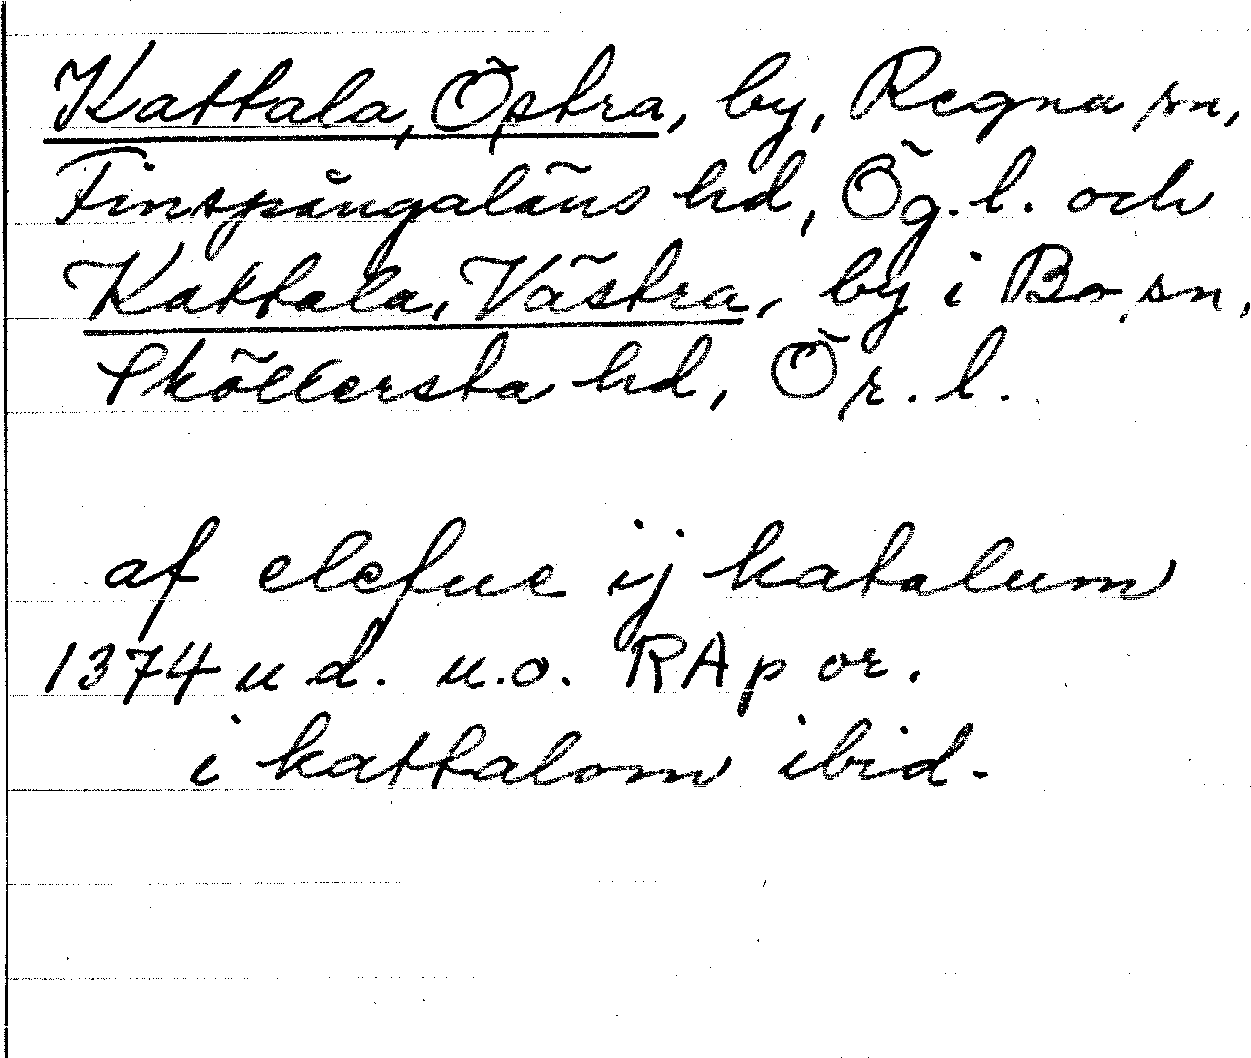 Kattala, Östra, by, Regna sn,
Finspångaläns hd, Ög. l. och
Kattala, Västra, by i Bo sn,
Sköllersta hd, Ör. l.
af elefue ij katalum
1374 u d. u.o. RAp or.
i kattalom ibid.